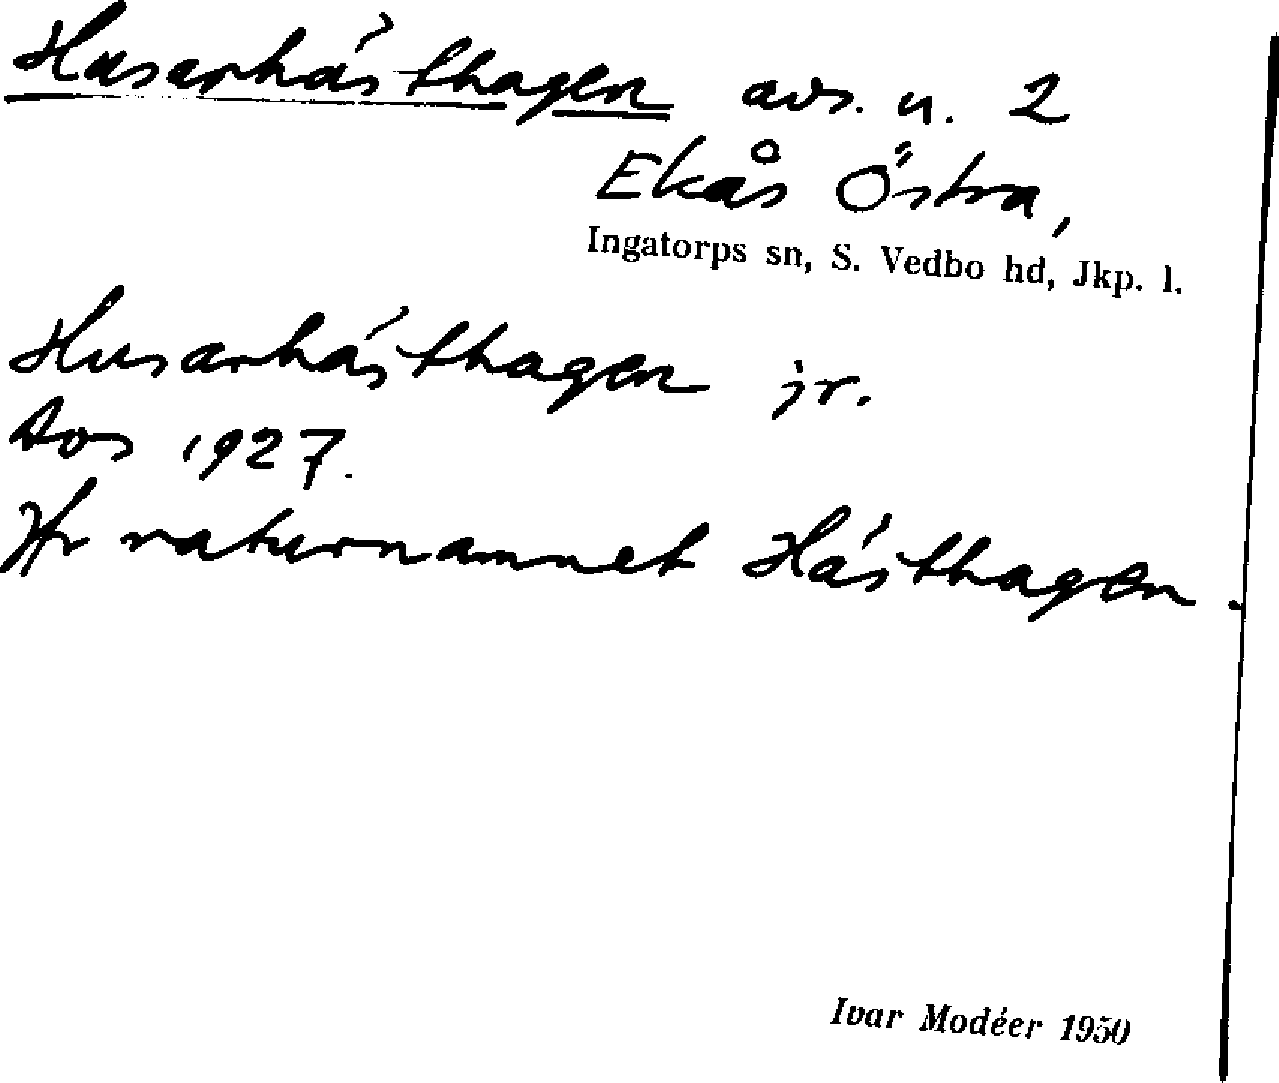 Husarhästhagen avs. u. 2
Ekås Östra,
Ingatorps sn, S. Vedbo hd, Jkp. l.
Husarhästhagen jr.
Dos 1927.
Jfr naturnamnet Hästhagen.
Ivar Modéer 1950